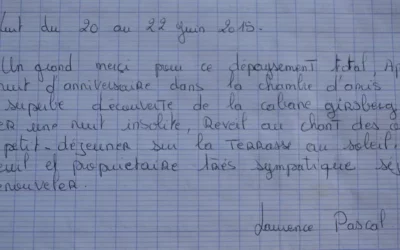 du 20 au 22 juin 2015.
Un grand merci pour ce depaysement total, Ap
nuit d'anniversaire dans la chambre d'amis
superbe découverte de la cabane girsberg
ER une nuit insolite, Reveil au chant des
petit-déjeuner sur la TERRASSE au soleil,
et proprietaire très sympatique
nouveler.
Laurence Pascal